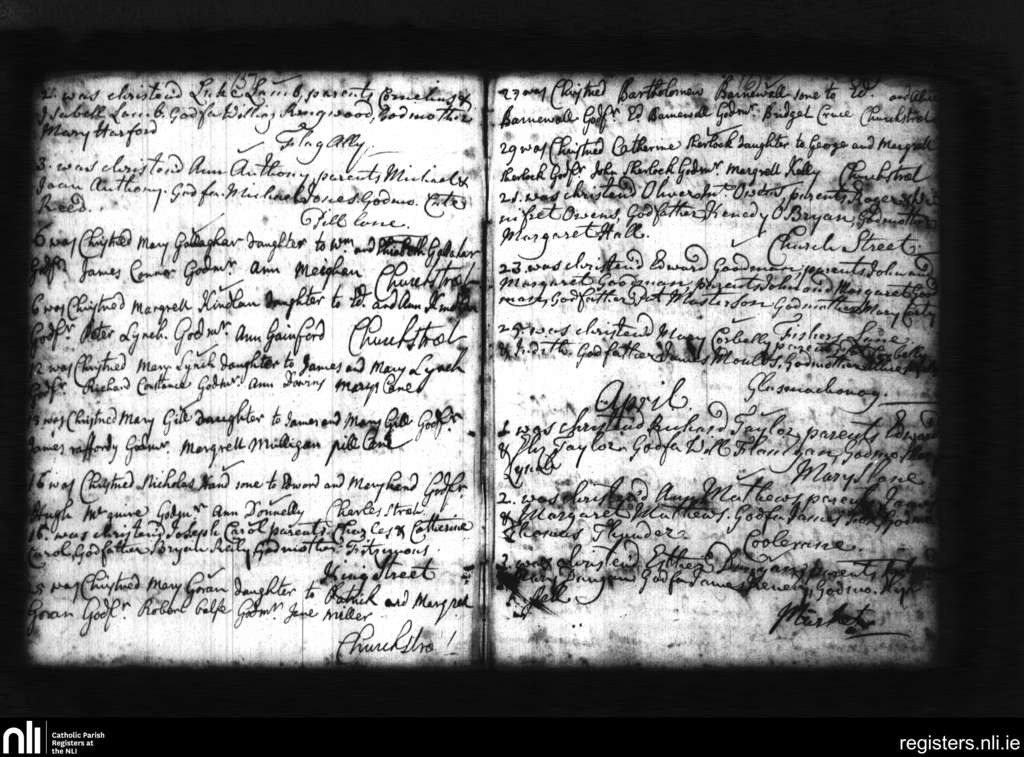 (5)
2. was christend Luke Lamb, parents Cornelius &
Isabell Lamb. Godfa Ringwood, Godmother
Mary Harford
Fingally.
3. was christend Ann Anthony, parents, Michael &
Joan Anthony. Godfa Michael Jones. Godmo. Cate
Reed.
Pill lane.
6 was Christned Mary Gallaghar daughter to Wm and Elizabeth Gallahar
Godfr. James Conner Godmr. Ann Meighan Churchstreet
6 was Christned Margrett Kindlan daughter to Ed. and Ann Kindlan
Godfr. Peter Lynch. Godmr. Ann Gainford Churchstreet
12 was Christned Mary Lynch daughter to James and Mary Lynch
Godfr. Richard Constance Godmr. Ann Downy Marys Lane
13 was Christned Mary Gill daughter to James and Mary Gill Godfr.
James rafferdy Godmr. Margrett Mulligan pill Lane
16 was Christned Nicholas Hand sone to Edword and Mary hand Godfr.
Hugh Mc guire Godmr. Ann Donnelly Charles Street
16. was christend Joseph Carol parents, Charles & Catherine
Carol, Godfather Bryan Reily Godmother Fitzsimons.
King Street
was Christned Mary Goran daughter to Patrick and Margret
Goran Godfr. Robert balfe Godmr. Jane Miller
Churchstree!
(6)
27 was Christned Bartholomew Barnewall sone to Ed. and Alice
Barnewall Godfr. Ed Barnewall Godmr. Bridget Cruce Churchstreet
29 was Christned Catherine Sherlock daughter to George and Margrett
Sherlock Godfr. John Sherlock Godmr. Margrett Kelly Churchstreet
21. was christend Oliver Owens parents Roger &
Owens, Godfather Kenedy O'Bryan Godmother
Margaret Hall.
Church Street.
23. was christend Edward Goodman, parents John and
Margaret Goodman, parents John and Margaret Good
man, Godfather Pat Masterson Godmother Mary Carty
Fishers Line
25. was christend Mary Corbally, parents
& Judith, Godfather James Godmother
Glasmachonog.
April
1. was christend Richard Taylor, parents Edward
& Eliz Taylor. Godfa Will Flanigan, Godmo. Mary
Lynch
Marys lane
2. was christend Ann Mathews parents James
& Margaret Mathews. Godfa James
Thomas Plunder
Coolerine.
was christend Esther Dungan, parents
& Mary Dungan Godfa James Godmo.
Market
nli
Catholic Parish
Registers at
the NLI
registers.nli.ie